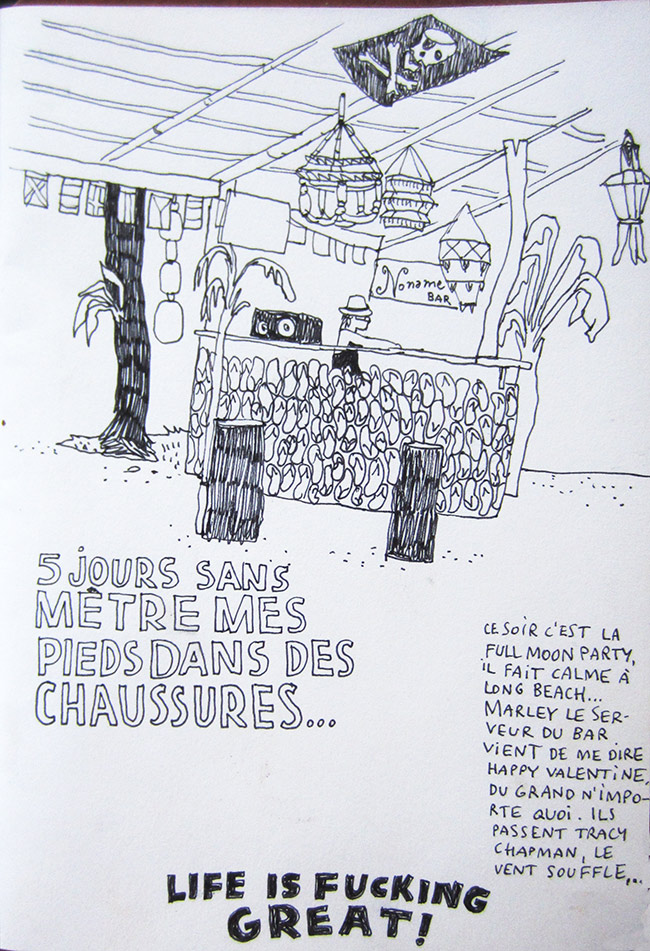 Noname
BAR
5 JOURS SANS
MÈTRE MES
PIEDS DANS DES
CHAUSSURES...
CE SOIR C'EST LA
FULL MOON PARTY,
IL FAIT CALME À
LONG BEACH...
MARLEY LE SER-
VEUR DU BAR
VIENT DE ME DIRE
HAPPY VALENTINE,
DU GRAND N'IMPO-
RTE QUOI. ILS
PASSENT TRACY
CHAPMAN, LE
VENT SOUFFLE,...
LIFE IS FUCKING
GREAT!